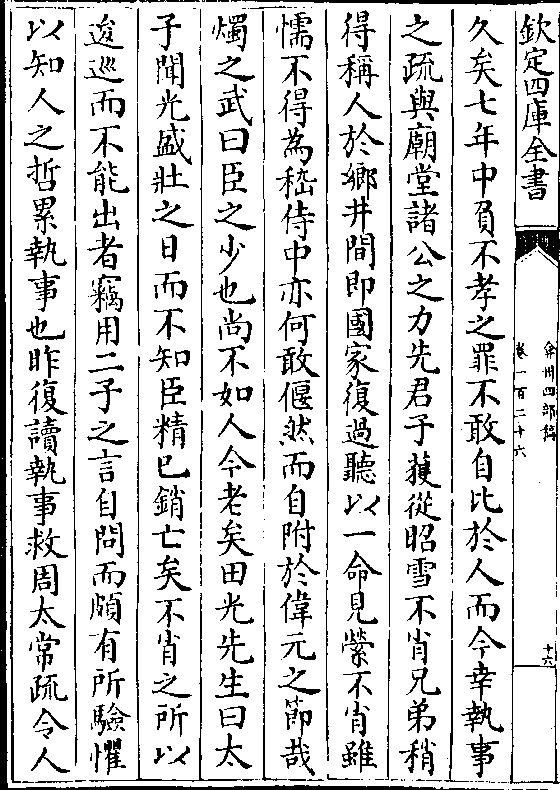 欽定四庫全書
弇州四部稿
卷一百二十六
十六
久矣七年中負不孝之罪不敢自比於人而今幸執事
之疏與廟堂諸公之力先君子獲從昭雪不肖兄弟稍
得稱人於鄉井間即國家復過聽以一命見縈不肖雖
懦不得為嵇侍中亦何敢偃然而自附於偉元之節哉
燭之武曰臣之少也尚不如人今老矣田光先生曰太
子聞光盛壯之日而不知臣精已銷亡矣不肖之所以
逡巡而不能出者竊用二子之言自問而頗有所驗懼
以知人之哲累執事也昨復讀執事救周太常疏令人